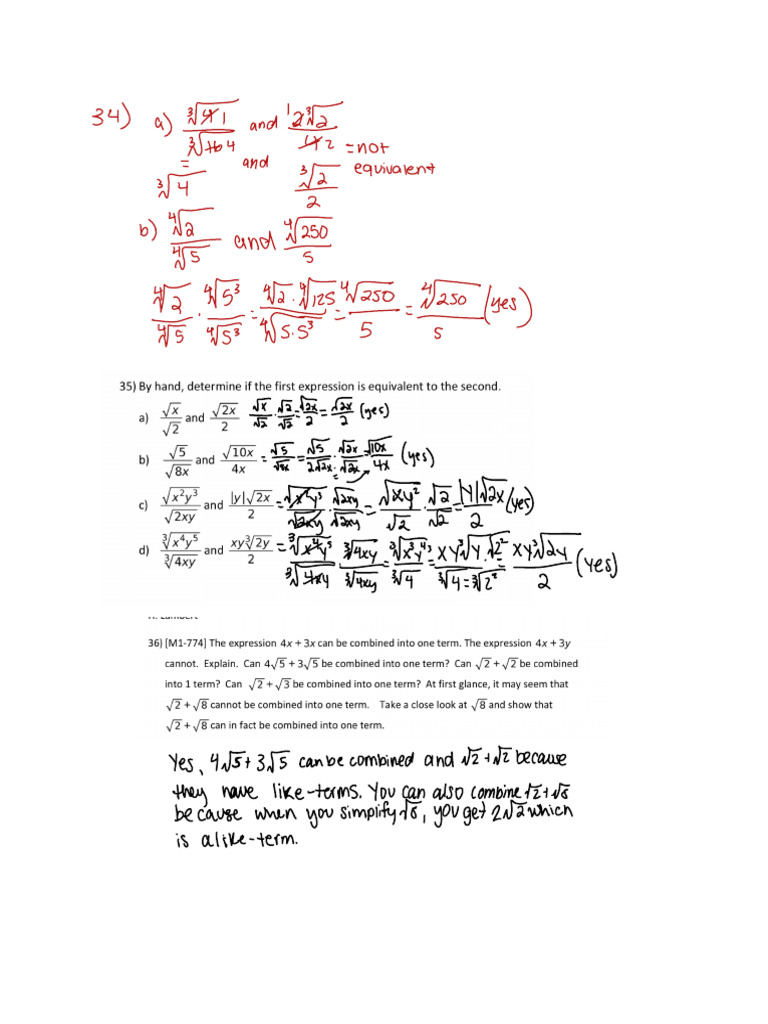 34) a) ∛4̸ 1 / ∛1̸6̸ 4 and 1 2̸∛2 / 4̸ 2 = not equivalent
= ∛4 and ∛2 / 2
b) ∜2 / ∜5 and ∜250 / 5
∜2 / ∜5 · ∜5³ / ∜5³ = ∜2 · ∜125 / ∜5·5³ = ∜250 / 5 = ∜250 / 5 (yes)
35) By hand, determine if the first expression is equivalent to the second.
a) √x / √2 and √2x / 2 √x / √2 · √2 / √2 = √2x / 2 = √2x / 2 (yes)
b) √5 / √8x and √10x / 4x = √5 / √8x = √5 / 2√2x · √2x / √2x = √10x / 4x (yes)
c) √x²y³ / √2xy and |y|√2x / 2 = √x²y³ / √2xy · √2xy / √2xy = √xy² / √2 · √2 / √2 = |y|√2x / 2 (yes)
d) ∛x⁴y⁵ / ∛4xy and xy∛2y / 2 = ∛x⁴y⁵ / ∛4xy ∛4xy / ∛4xy = ∛x³y⁴ / ∛4 = xy∛y · ∛2² / ∛4 = ∛2² = xy∛2y / 2 (yes)
36) [M1-774] The expression 4x + 3x can be combined into one term. The expression 4x + 3y
cannot. Explain. Can 4√5 + 3√5 be combined into one term? Can √2 + √2 be combined
into 1 term? Can √2 + √3 be combined into one term? At first glance, it may seem that
√2 + √8 cannot be combined into one term. Take a close look at √8 and show that
√2 + √8 can in fact be combined into one term.
Yes, 4√5 + 3√5 can be combined and √2 + √2 because
they have like-terms. You can also combine √2 + √8
because when you simplify √8, you get 2√2 which
is a like-term.